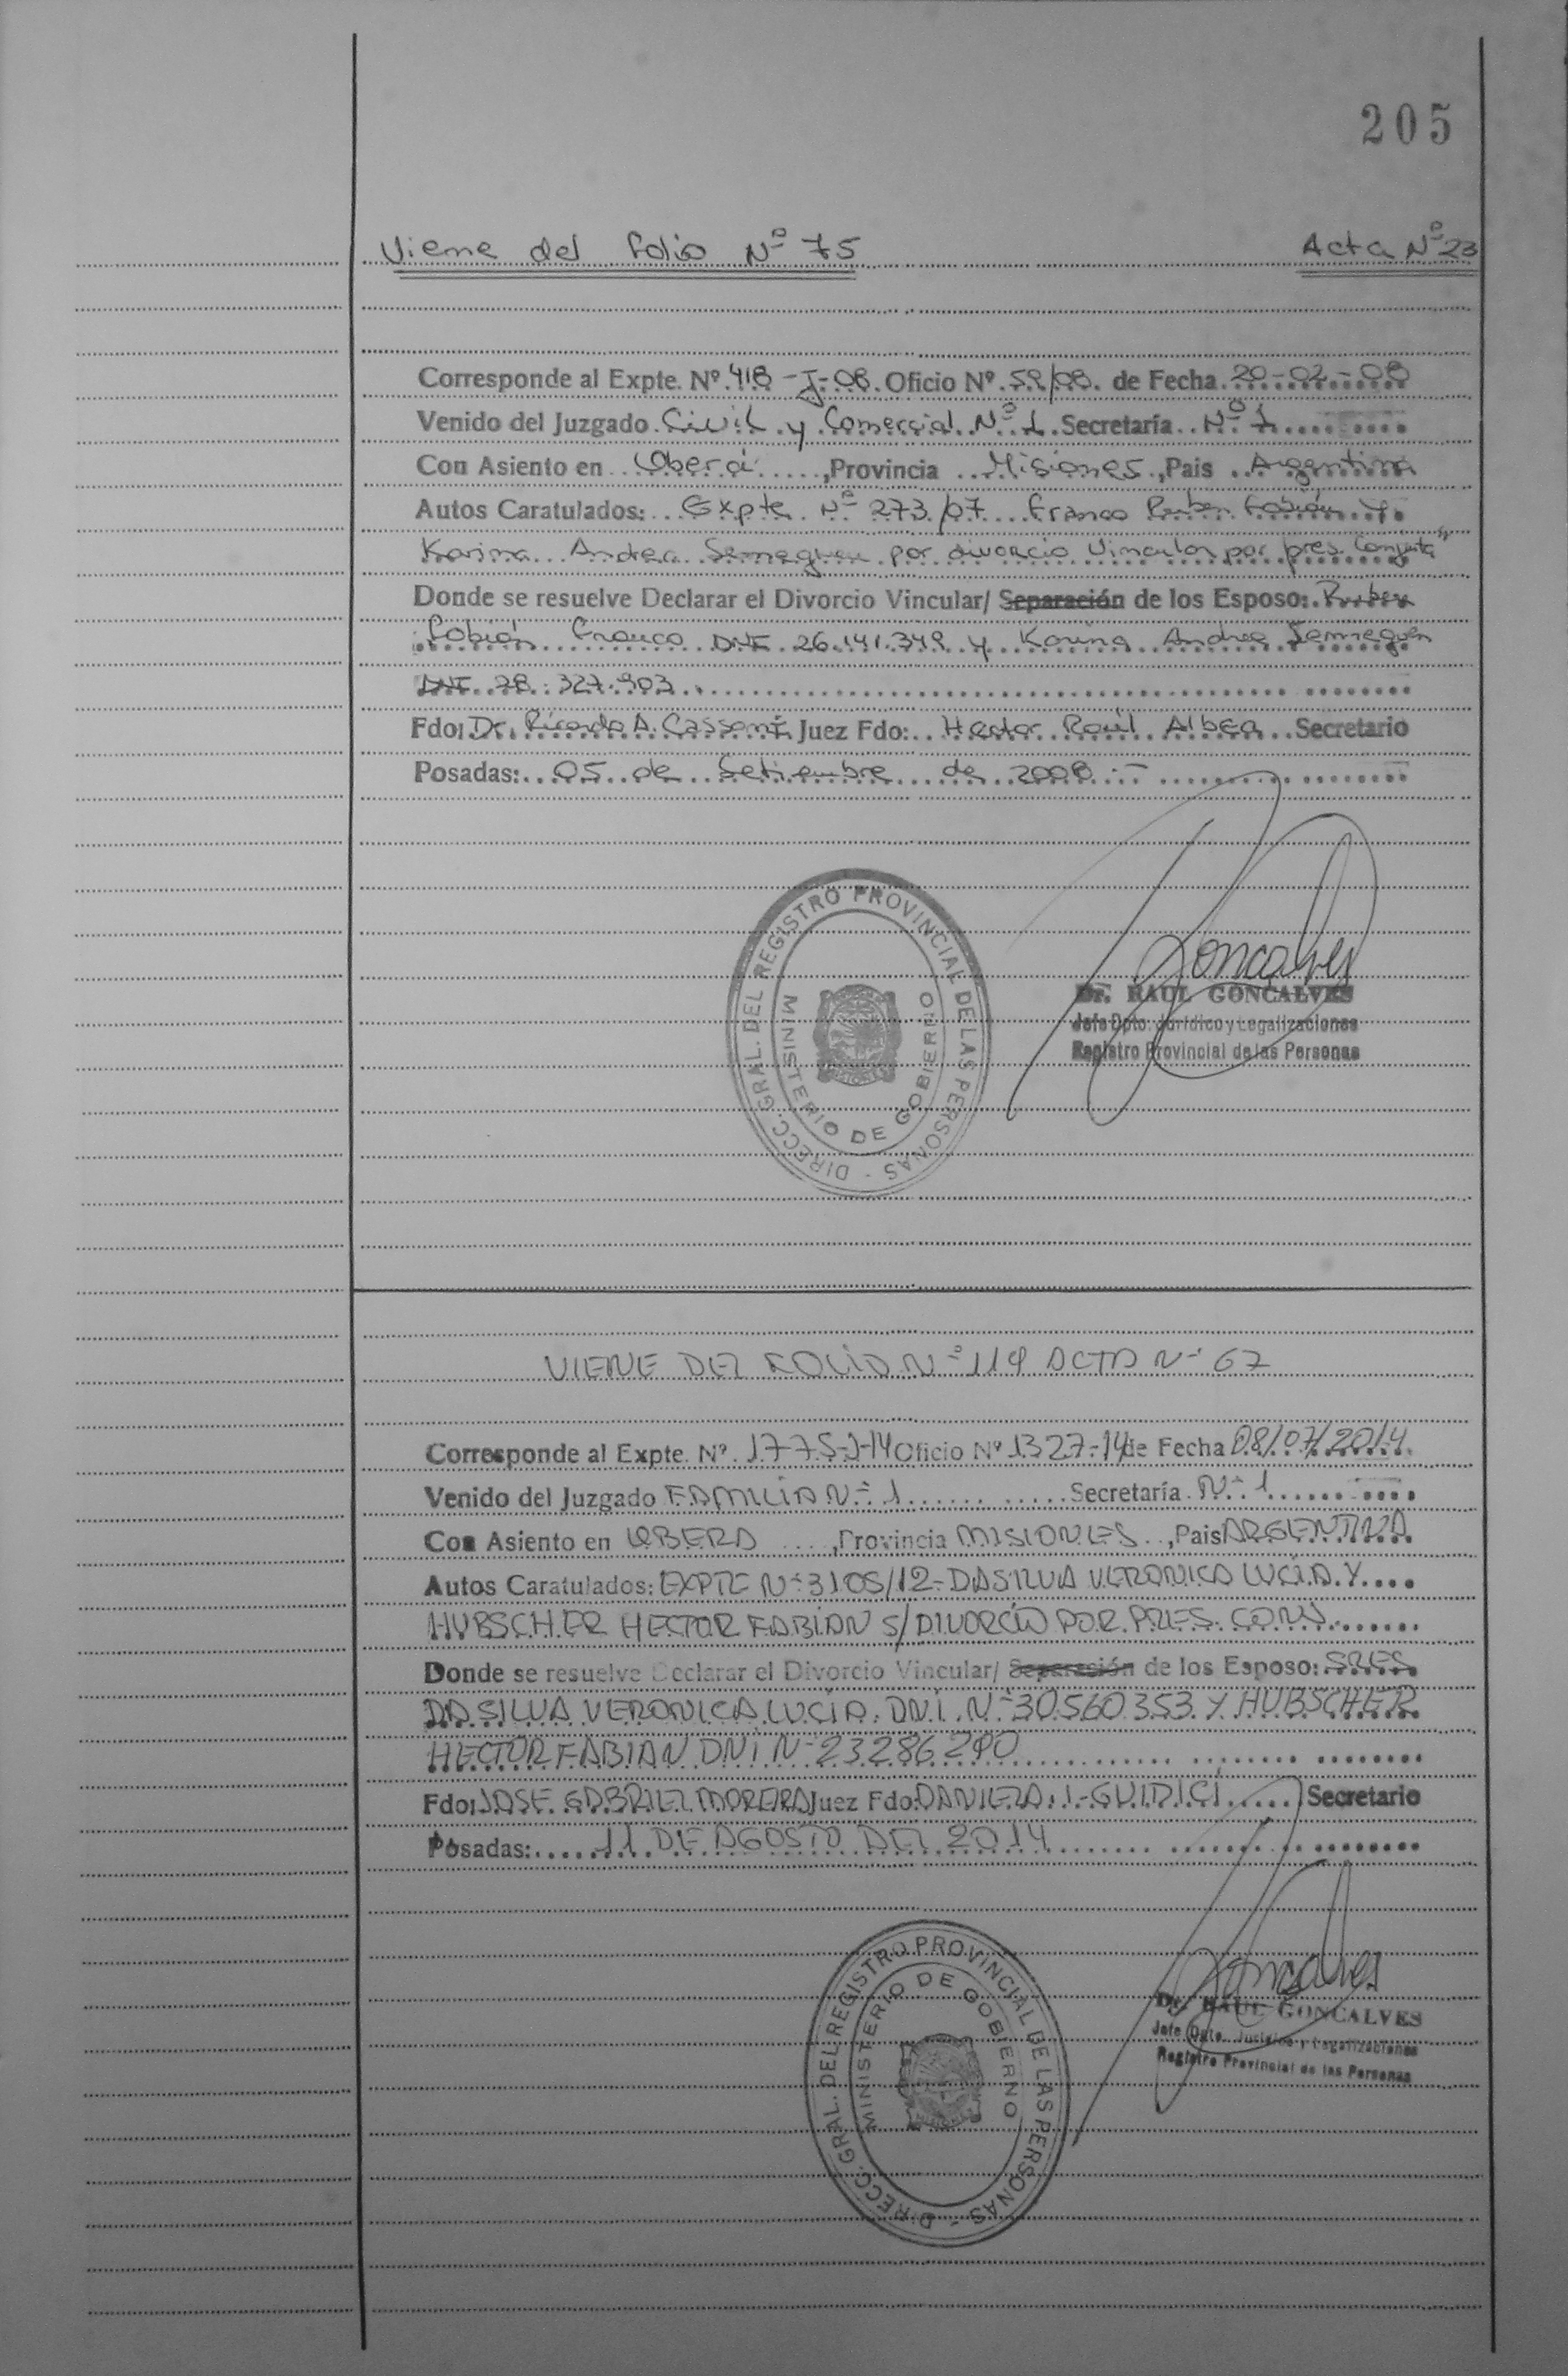 205
Viene del folio Nº 75 Acta Nº 23
Corresponde al Expte. Nº. 418-J-08. Oficio Nº. 59/08. de Fecha. 20-02-08
Venido del Juzgado. Civil y Comercial Nº 1. Secretaría.. Nº 1
Con Asiento en.. Oberá ,Provincia .. Misiones.,Pais .. Argentina
Autos Caratulados:.. Expte. Nº 273/07 Franco Ruben Fabián y
Karina Andrea Semeguen por divorcio Vincular por pres. Conjunta"
Donde se resuelve Declarar el Divorcio Vincular/ Separación de los Esposo: Ruben
Fabián Franco DNI 26.141.349 y Karina Andrea Semeguen
DNI 28.327.903
Fdo: Dr. Ricardo A. Cassoni Juez Fdo:.. Hector Raúl Albea Secretario
Posadas:.. 05 de Setiembre de 2008.-
DIRECC. GRAL. DEL REGISTRO PROVINCIAL DE LAS PERSONAS -
MINISTERIO DE GOBIERNO
Goncalves
Dr. RAUL GONCALVES
Jefe Dpto. Jurídico y Legalizaciones
Registro Provincial de las Personas
VIENE DEL FOLIO Nº 119 ACTA Nº 67
Corresponde al Expte. Nº. 1775-J-14 Oficio Nº 1327-14 de Fecha 08/07/2014
Venido del Juzgado FAMILIA Nº 1 Secretaría. Nº 1
Con Asiento en OBERA ,Provincia MISIONES ,Pais ARGENTINA
Autos Caratulados: EXPTE Nº 3105/12- DASILVA VERONICA LUCÍA Y
HUBSCHER HECTOR FABIAN S/ DIVORCIO POR PRES. CONJ.
Donde se resuelve Declarar el Divorcio Vincular/ Separación de los Esposo: SRES
DA SILVA VERONICA LUCÍA. DNI. Nº 30.560.353 Y HUBSCHER
HECTOR FABIAN DNI Nº 23286290
Fdo: JOSE GABRIEL MOREIRA Juez Fdo: DANIELA. I. GUIDICI Secretario
Posadas: 11 DE AGOSTO DEL 2014
DIRECC. GRAL. DEL REGISTRO PROVINCIAL DE LAS PERSONAS -
MINISTERIO DE GOBIERNO
Goncalves
Dr. RAUL GONCALVES
Jefe Dpto. Jurídico y Legalizaciones
Registro Provincial de las Personas